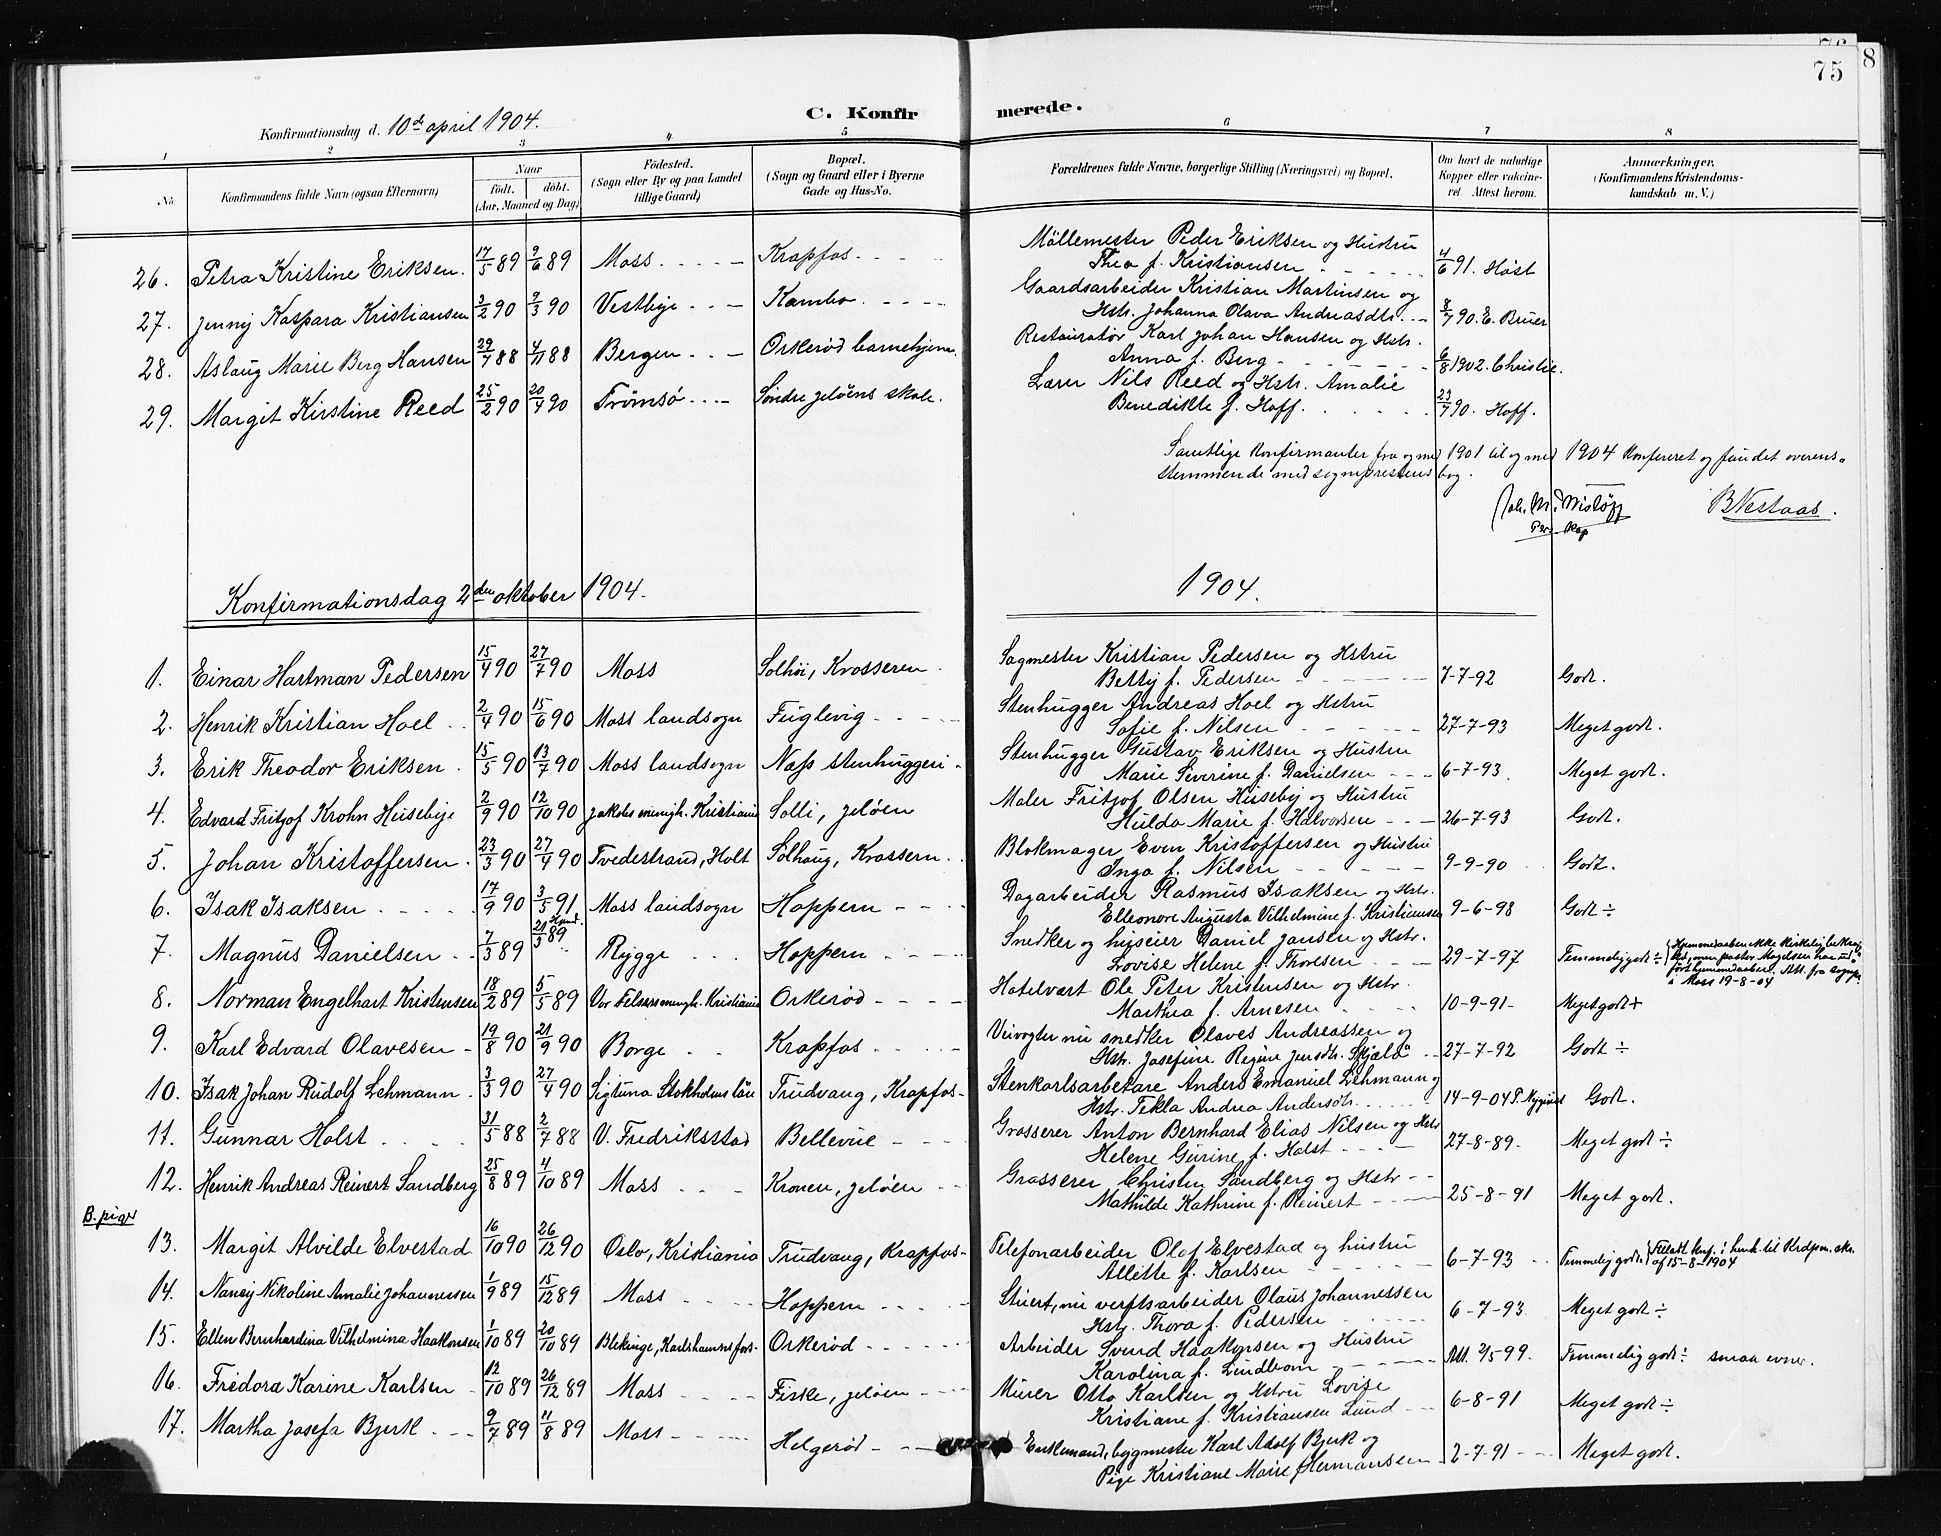 76
75
8
C. Konfirmerede.
Konfirmationsdag d. 10de april 1904.
1 2 3 4 5 6 7 8
No. Konfirmandens fulde Navn (ogsaa Efternavn) Naar født. døbt. (Aar, Maaned og Dag) Fødested. (Sogn eller By og paa Landet tillige Gaard) Bopæl. (Sogn og Gaard eller i Byerne Gade og Hus-No. Forældrenes fulde Navne, borgerlige Stilling (Næringsvei) og Bopæl. Om havt de naturlige Kopper eller vakcineret. Attest herom. Anmærkninger. (Konfirmandens Kristendomskundskab m. V.)
26. Petra Kristine Eriksen. 17/5 89 9/6 89 Moss. Krapfos Möllemester Peder Eriksen og Hustru
Thea f. Kristiansen 4/6 91. Høst
27. Jenny Kaspara Kristiansen 3/2 90 9/3 90 Vestbye Kambo. Gaardsarbeider Kristian Martinsen og
Hstr. Johanna Olava Andreasdtr. 8/7 90. E. Bruer
28. Aslaug Marie Berg Hansen 29/7 88 4/11 88 Bergen Orkerød barnehjem. Restauratør Karl Johan Hansen og Hstr.
Anna f. Berg 6/8 1902. Christie.
29. Margit Kirstine Reed 25/2 90 20/4 90 Tromsø Söndre Jeløens skole. Lærer Nils Reed og Hstr. Amalie
Benedikte f. Hoff. 23/7 90. Hoff.
Samtlige Konfirmanter fra og med 1901 til og med 1904 Konfereret og fundet overens-
stemmende med sogneprestens bog.
B Nestaas.
Konfirmationsdag 2den oktober 1904. 1904.
1. Einar Hartman Pedersen 15/4 90 27/7 90 Moss Solhöi, Krosseren Sagmester Kristian Pedersen og Hstru
Betty f. Pedersen 7-7-92 Godt.
2. Henrik Kristian Hoel 2/4 90 15/6 90 Moss landsogn Fuglevig Stenhugger Andreas Hoel og Hstru
Sofie f. Nilsen 27-7-93 Meget godt.
3. Erik Theodor Eriksen 15/5 90 13/7 90 Moss landsogn Næss stenhuggeri Stenhugger Gustav Eriksen og Hustru
Marie Severine f. Danielsen 6-7-93. Meget godt.
4. Edvard Fritjof Krohn Huseby 2/9 90 12/10 90 Jakobs menigh. Kristiania Solli, Jeløen Maler Fritjof Olsen Huseby og Hustru
Hulda Marie f. Halvorsen 26-7-93 Godt.
5. Johan Kristoffersen 23/3 90 27/4 90 Tvedestrand, Holt Solhaug, Krossern Blokmager Even Kristoffersen og Hustru
Inga f. Nilsen 9-9-90 Godt.
6. Isak Isaksen 17/9 90 3/5 91 Moss landsogn Hoppern Dagarbeider Rasmus Isaksen og Hstr.
Elleonore Augusta Vilhelmine f. Kristiansen 9-6-98 Godt ÷
7. Magnus Danielsen 7/3 89 21/3 89 Rygge Hoppern Snedker og huseier Daniel Jansen og Hstr.
Lovise Helene f. Thoresen 29-7-97 Temmelig godt ÷
8. Norman Engelhart Kristensen 18/2 89 5/5 89 Vor Frelsers menigh. Kristiania Orkerød Hotelvært Ole Peter Kristensen og Hstr.
Marthea f. Arnesen 10-9-91 Meget godt +
9. Karl Edvard Olavesen 19/8 90 21/9 90 Borge Krapfos Veivogter nu snedker Olaves Andreassen og
Hstr. Josefine Regine Jensdtr. Skjelå 27-7-92 Godt ÷
10. Isak Johan Rudolf Lehmann 3/3 90 27/4 90 Sigtuna Stokholms län Trudvang, Krapfos Stenkarlsarbetare Anders Emanuel Lehmann og
Hstr. Tekla Andrea Andersdtr. 14-9-04 Godt.
11. Gunnar Holst 31/5 88 2/7 88 V. Fredriksstad Bellevue Grosserer Anton Bernhard Elias Nilsen og Hstr
Helene Gurine f. Holst 27-8-89 Meget godt ÷
12. Henrik Andreas Reinert Sandberg 25/8 89 4/10 89 Moss Kronen, Jeløen Grosserer Christen Sandberg og Hstr
Mathilde Kathrine f. Reinert 25-8-91 Meget godt.
B. piger
13. Margit Alvilde Elvestad 16/10 90 26/12 90 Oslo, Kristiania Trudvang, Krapfos Telefonarbeider Olaf Elvestad og hustru
Allette f. Karlsen 6-7-93 Temmelig godt. af 15-8-1904
14. Nancy Nikoline Amalie Johannessen 1/9 89 15/12 89 Moss Hoppern Stuert, nu verftsarbeider Olaus Johannessen
Hstr. Thora f. Pedersen 6-7-93 Meget godt ÷
15. Ellen Bernhardina Vilhelmina Haakonsen 1/10 89 20/10 89 Blekinge, Karlshamns fors. Orkerød Arbeider Svend Haakonsen og Hustru
Karolina f. Lundbom Att. 2/5 99. Temmelig godt ÷ smaa evner.
16. Fredora Karine Karlsen 12/10 89 26/12 89 Moss Fiske, Jeløen Murer Otto Karlsen og Hstru Lovise
Kristiane f. Kristiansen Lund 6-8-91 Meget godt ÷
17. Martha Josefa Bjerk 9/7 89 11/8 89 Moss Helgerød Enkemand, bygmester Karl Adolf Bjerk og
Pige Kristiane Marie Hermansen 2-7-91 Meget godt.